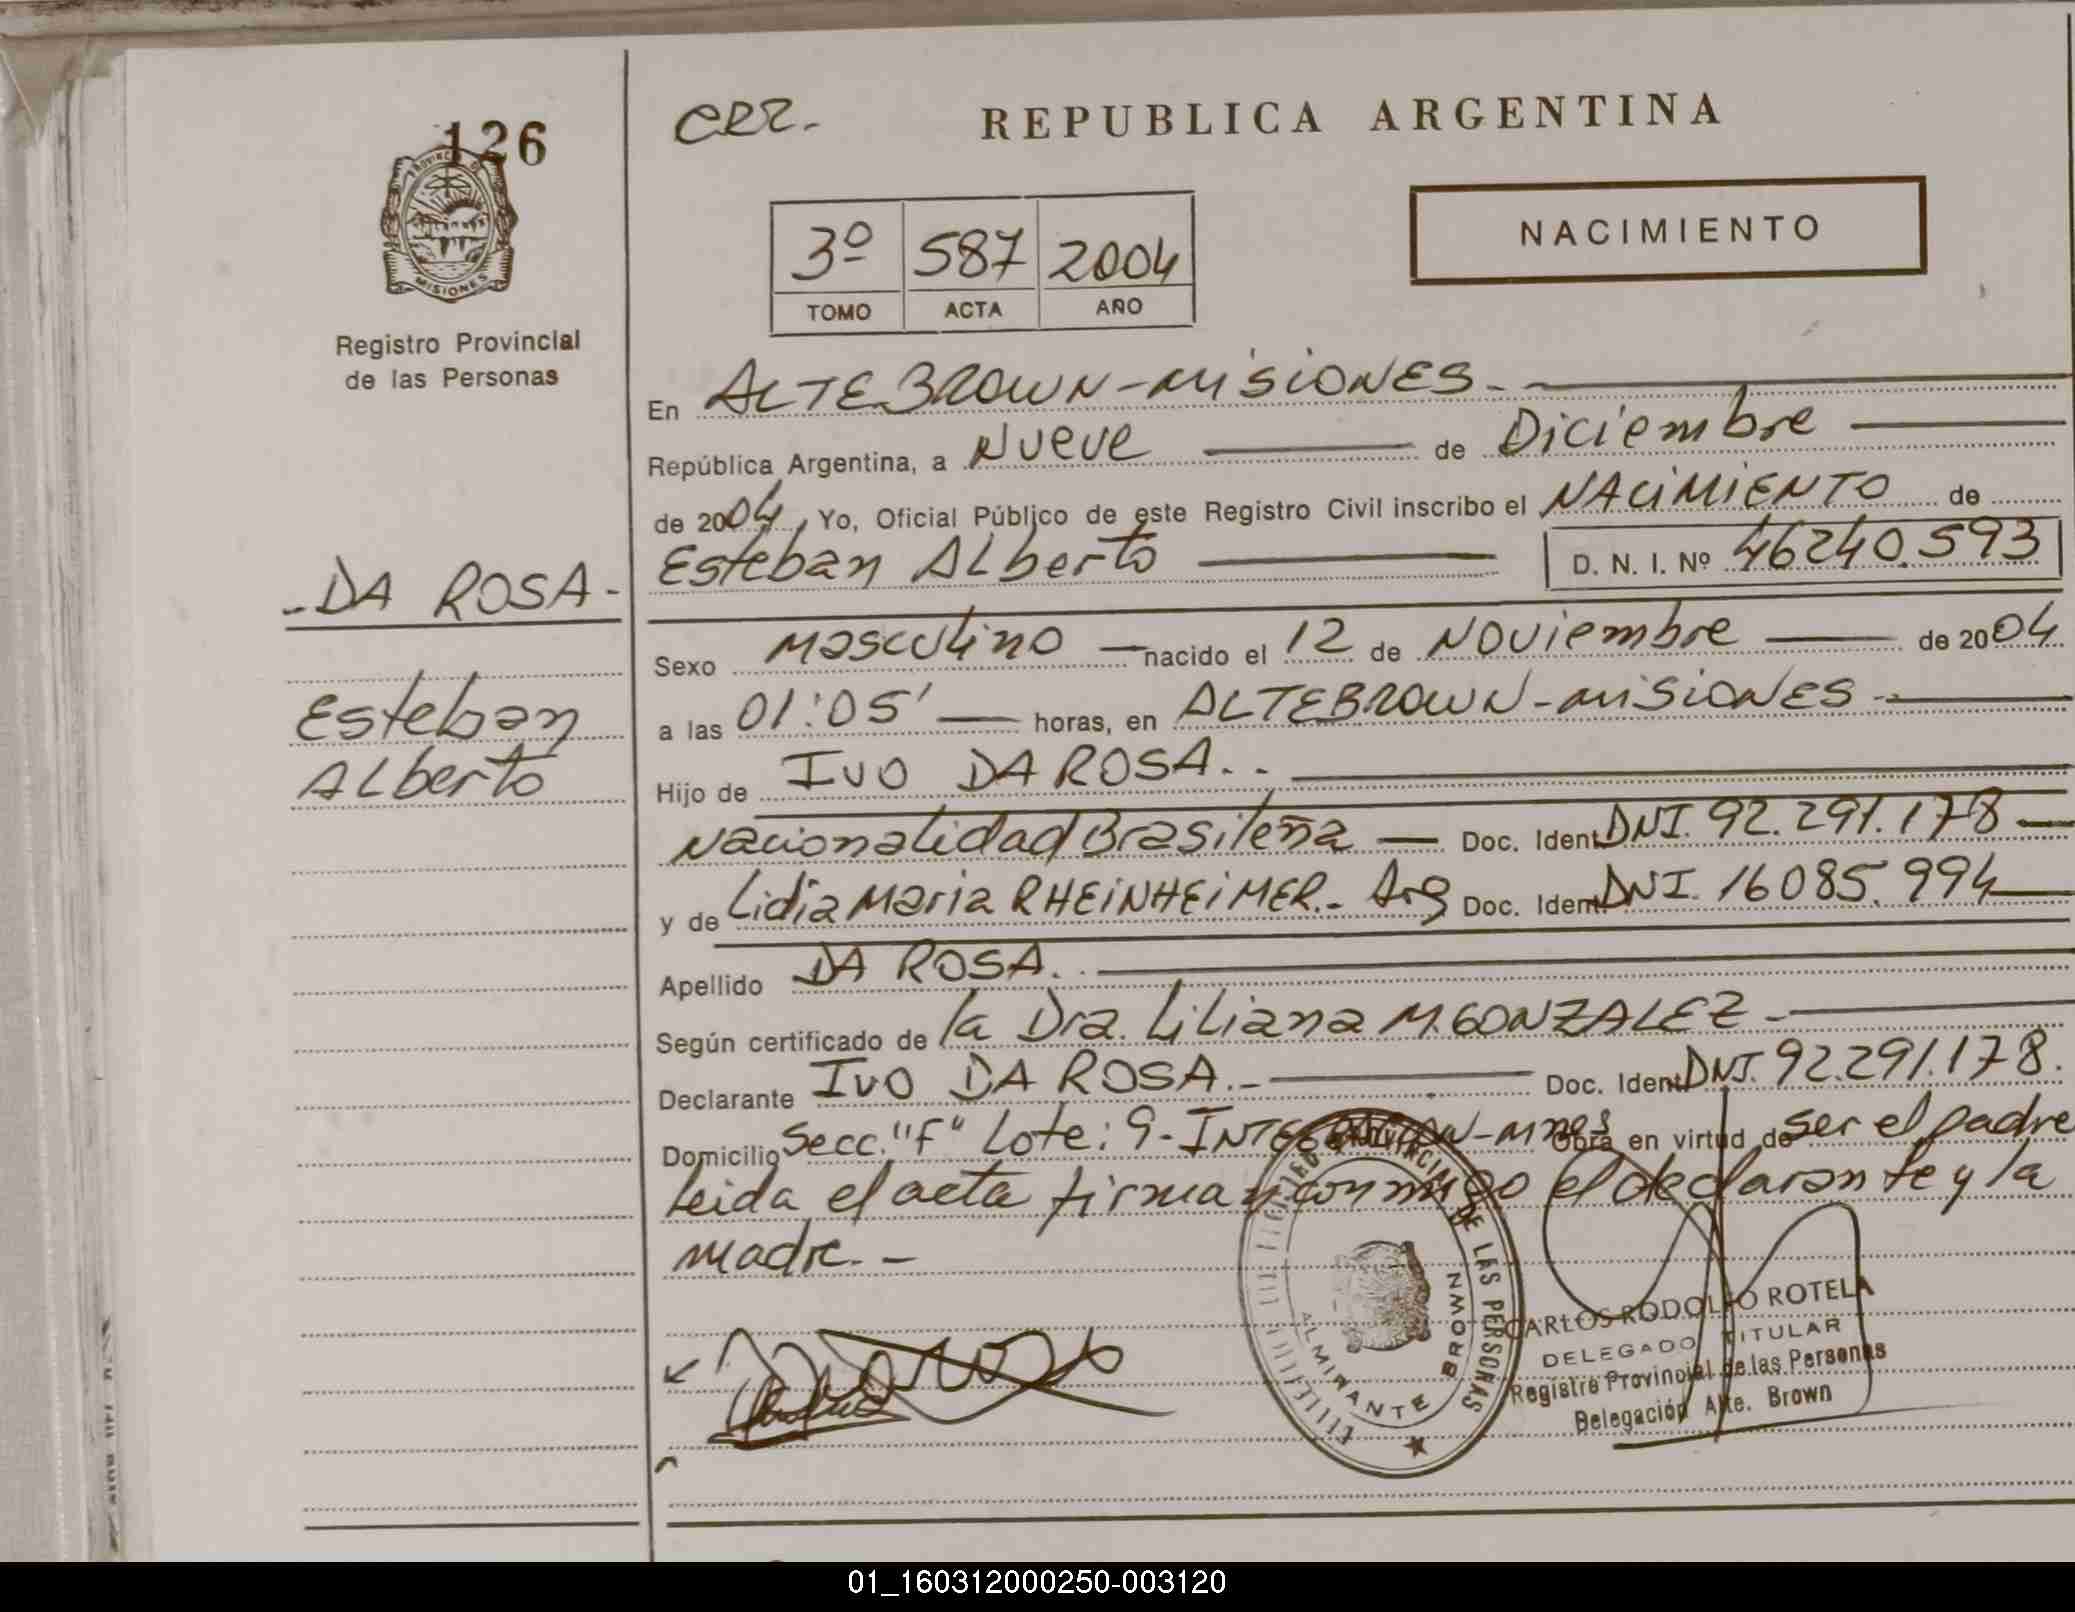 126
PROVINCIA DE
MISIONES
Registro Provincial
de las Personas
- DA ROSA -
Esteban
Alberto
CRZ.-
REPUBLICA ARGENTINA
3º 587 2004
TOMO ACTA AÑO
NACIMIENTO
En ALTE BROWN - MISIONES -
República Argentina, a Nueve de Diciembre
de 2004, Yo, Oficial Público de este Registro Civil inscribo el NACIMIENTO de
Esteban Alberto D. N. I. Nº 46240.593
Sexo Masculino nacido el 12 de Noviembre de 2004
a las 01:05' horas, en ALTE BROWN - MISIONES -
Hijo de IVO DA ROSA. -
Nacionalidad Brasileña Doc. Ident. DNI. 92.291.178
y de Lidia Maria RHEINHEIMER.- Arg Doc. Ident. DNI. 16085.994
Apellido DA ROSA.
Según certificado de la Dra. Liliana M. GONZALEZ -
Declarante IVO DA ROSA.- Doc. Ident. DNI. 92.291.178.
Domicilio Secc. "F" Lote: 9- INTEGRACION - MNES Obra en virtud de ser el padre
Leida el acta firman conmigo el declarante y la
madre. -
DE LAS PERSONAS
ALMIRANTE BROWN
CARLOS RODOLFO ROTELA
DELEGADO TITULAR
Registro Provincial de las Personas
Delegación Alte. Brown
01_160312000250-003120